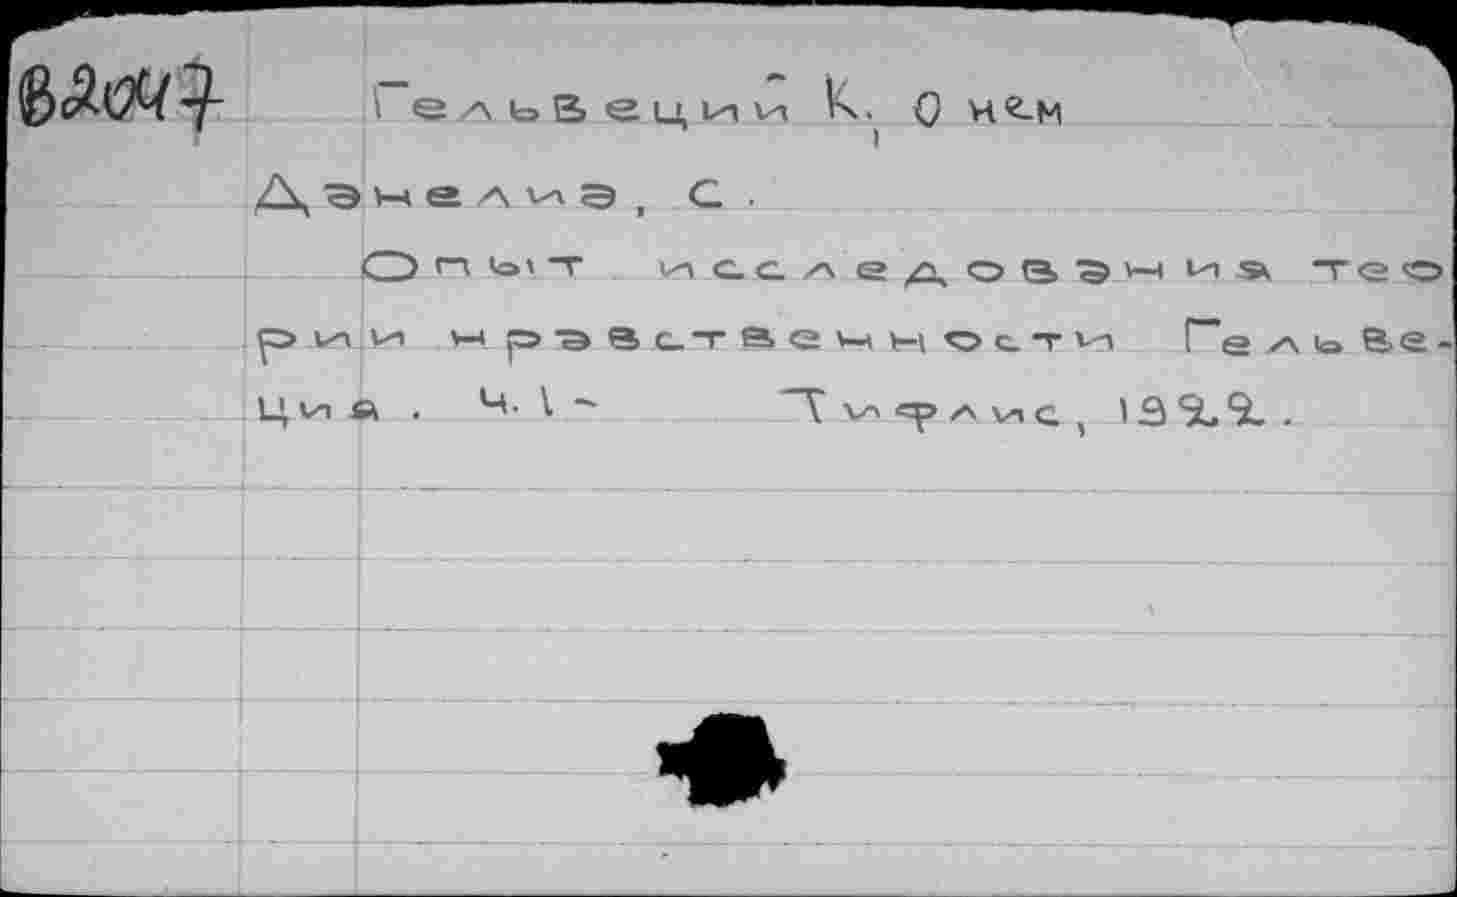 Гельвеций К., О нем
Данелиа, С.
Опыт исследования тео
рии нравственности Гельве-
ция. Ч.1- Тифлис, 1922.